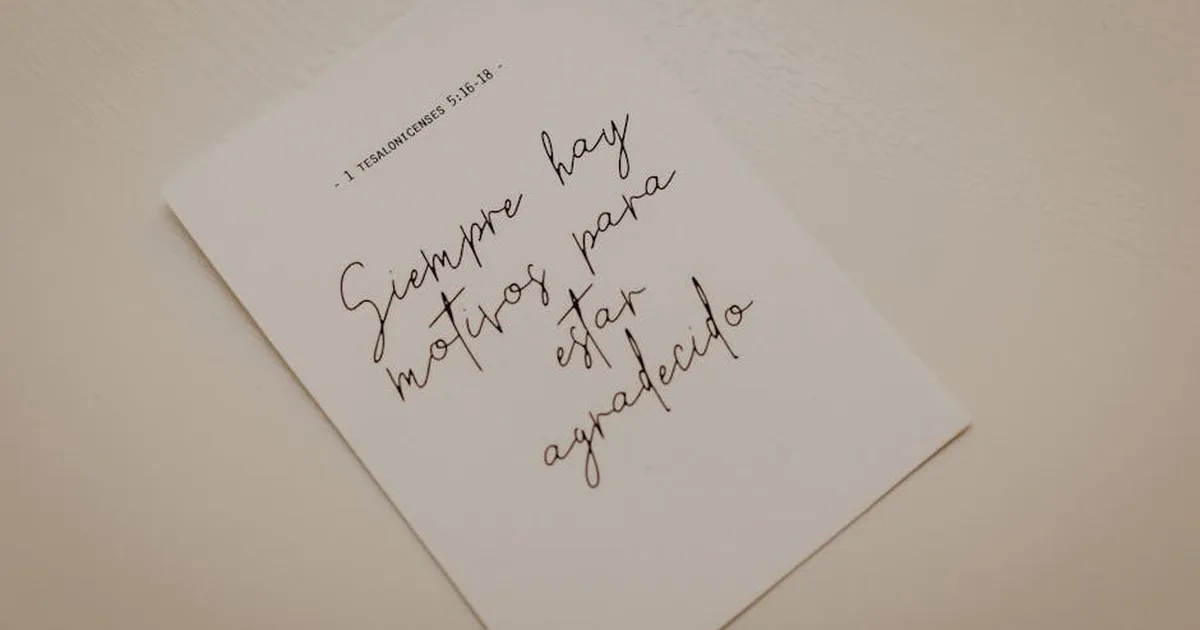 - 1 TESALONICENSES 5:16-18 -
Siempre hay
motivos para
estar
agradecido